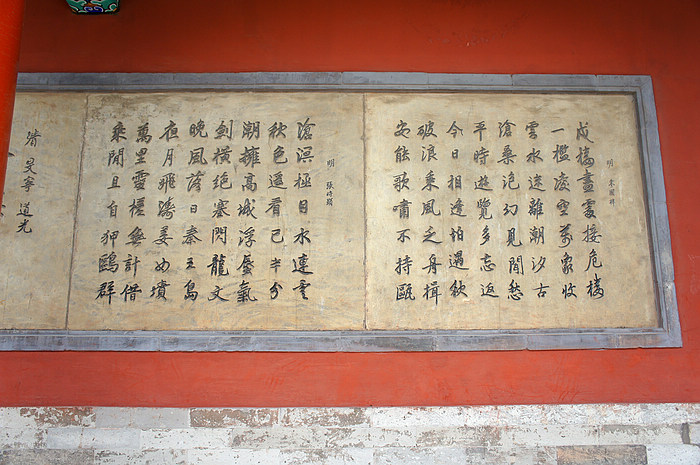 明 朱國梓
戍樓盡處接危樓
一檻凌空萬象收
雲水迷離潮汐古
滄桑泡幻見聞愁
平時遊覽多忘返
今日相逢怕遇秋
破浪乘風乏舟楫
安能歌嘯不持甌
明 張時顯
滄溟極目水連雲
秋色遥看已半分
潮擁高城浮蜃氣
劍橫絕塞閃龍文
晚風落日秦王島
夜月飛濤姜女墳
萬里雪槎無計借
乘閒且自狎鷗群
清 旻寧 道光